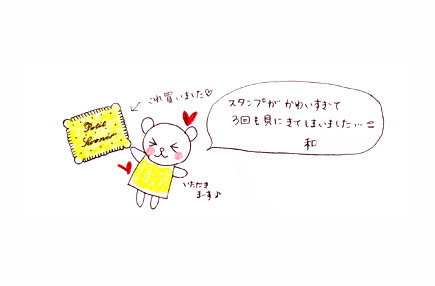 これ買いました♡
Petit
Sounir
スタンプが かわいすぎて
3回も見にきてしまいました…=
和
いただき
まーす♪